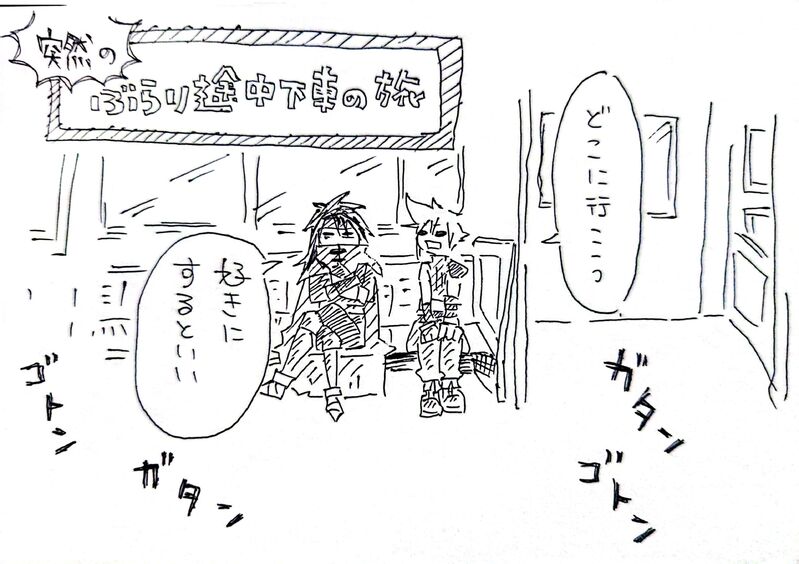 突然の
ぶらり途中下車の旅
どこに行こっ
好きに
するといい
ガタン
ゴトン
ガタン
ゴトン